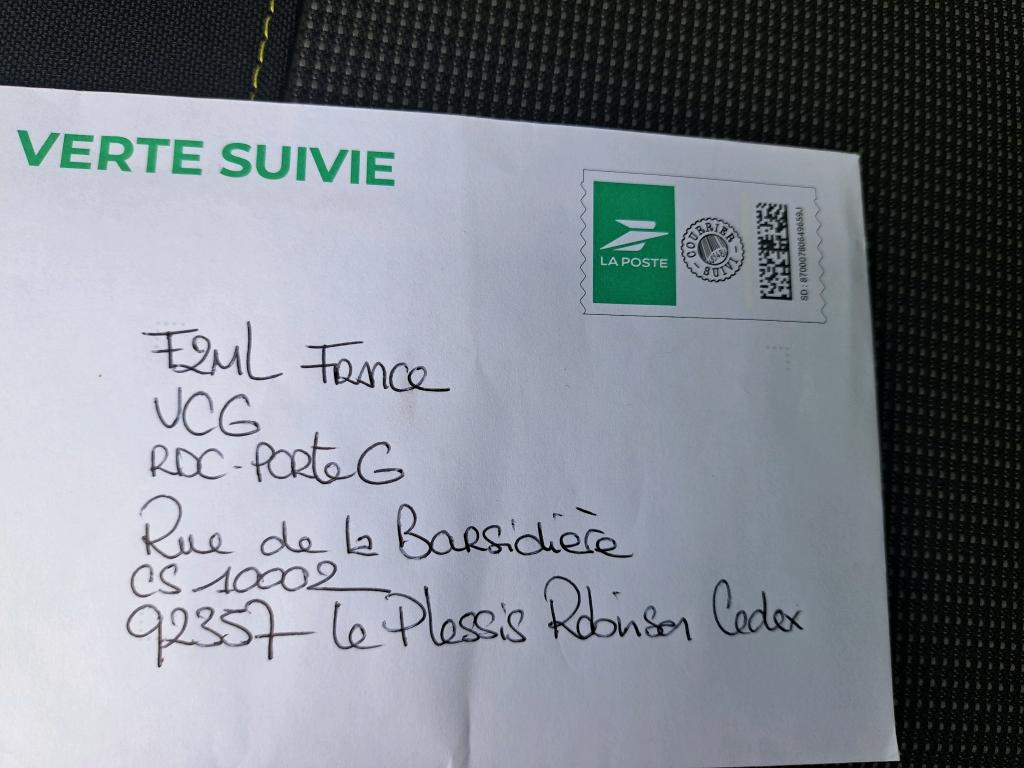 VERTE SUIVIE
LA POSTE
COURRIER SUIVI
SD : 87000780649659J
F2ML France
VCG
RDC - Porte G
Rue de la Barsidière
CS 10002
92357 Le Plessis Robinson Cedex